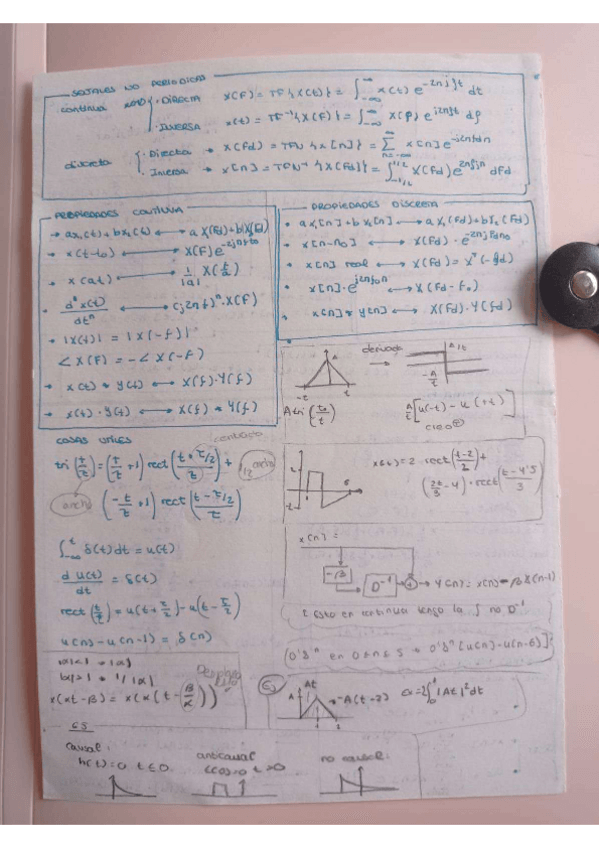 SEÑALES NO PERIODICAS
continua
· DIRECTA X(F) = TF{x(t)} = ∫_{-∞}^{∞} x(t) e^{-2πjft} dt
· INVERSA x(t) = TF^{-1}{X(F)} = ∫_{-∞}^{∞} X(F) e^{j2πft} df
discreta
· Directa → X(Fd) = {x[n]} = Σ_{n=-∞}^{∞} x[n] e^{-j2πfdn}
· Inversa → x[n] = {X(Fd)} = ∫_{-1/2}^{1/2} X(Fd) e^{2πfjn} dFd
PROPIEDADES CONTINUA
→ ax₁(t)+bx₂(t) ⟷ aX(Fd)+bX(Fd)
· x(t-t₀) ⟷ X(F) e^{-2πjft₀}
· x(at) ⟷ 1/|a| X(f/a)
· dⁿx(t)/dtⁿ ⟷ (j2πf)ⁿ·X(F)
· |X(f)| = |X(-f)|
∠X(F) = -∠X(-F)
· x(t) * y(t) ⟷ X(f)·Y(f)
· x(t)·y(t) ⟷ X(f) * Y(f)
PROPIEDADES DISCRETA
· ax₁[n]+bx₂[n] ⟷ aX₁(Fd)+bX₂(Fd)
· x[n-n₀] ⟷ X(Fd)·e^{-2πjFdn₀}
· x[n] real ⟷ X(Fd) = X*(-fd)
· x[n]·e^{j2πf₀n} ⟷ X(Fd-F₀)
· x[n] * y[n] ⟷ X(Fd)·Y(fd)
derivada
A
-τ τ
A/τ
-A/τ
A/τ [u(-t) - u(+t)]
COSAS UTILES
centrado
tri(t/τ) = (t/τ +1) rect(t+τ/2 / τ) +
ancho
ancho
(-t/τ +1) rect(t-τ/2 / τ)
x(t) = 2 rect(t-2/2) +
(2t/3 - 4)·rect(t-4'5/3)
∫_{-∞}^{t} δ(t)dt = u(t)
d u(t)/dt = δ(t)
rect(t/τ) = u(t+τ/2) - u(t-τ/2)
u(n) - u(n-1) = δ(n)
x[n] =
-β
D^{-1}
+
→ y(n) = x(n) - βX(n-1)
Esto en continua tengo la ∫ no D^{-1}
(0'8ⁿ en 0≤n≤5 = 0'8ⁿ[u(n)-u(n-6)]
x(αt-β) = x(α(t-(β/α)))
Ej
At
A
-A(t-2)
E=2∫₀¹|At|²dt
ES
causal:
h(t)=0 t≤0
anticausal
t>0
no causal: